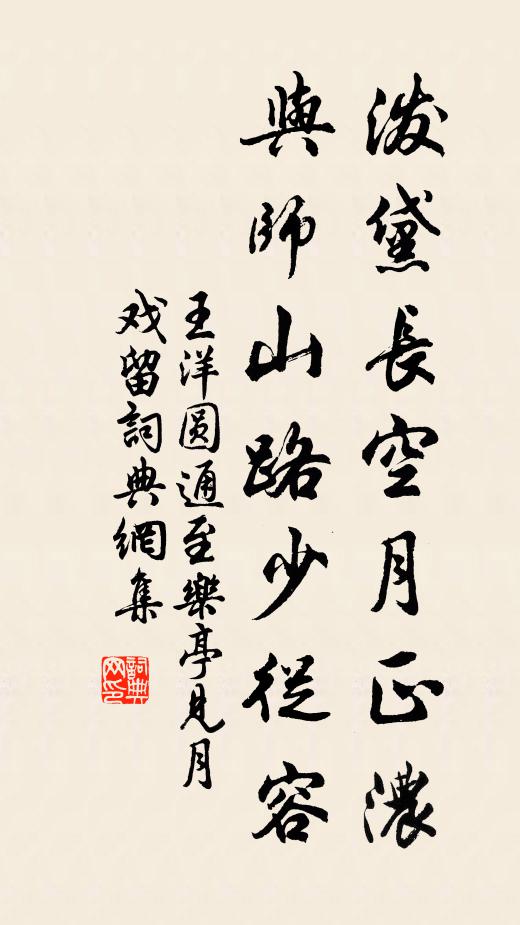 泼黛長空月正濃
與師山路少從容
王洋圆通至樂亭見月
戏留詞典網集
詞典网印